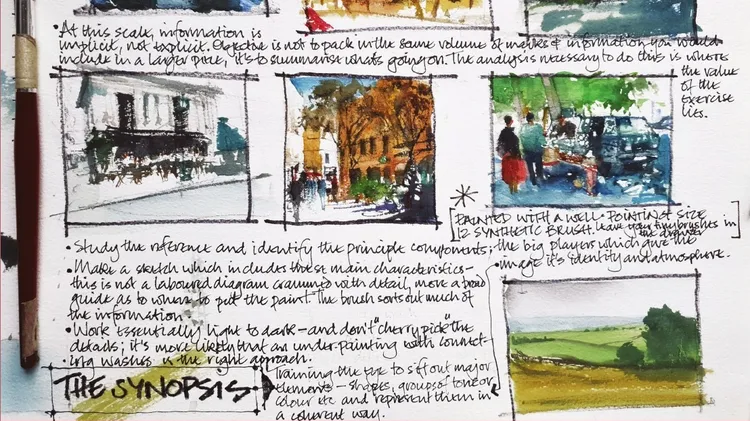 • At this scale, information is
implicit, not explicit. Objective is not to pack in the same volume of marks & information you would
include in a larger piece, it's to summarise whats going on. The analysis necessary to do this is where
the value
of the
exercise
lies.
* [PAINTED WITH A WELL-POINTING SIZE
12 SYNTHETIC BRUSH. leave your tiny brushes in
the drawer]
• Study the reference and identify the principle components; the big players which give the
image it's identity and atmosphere.
• Make a sketch which includes these main characteristics –
this is not a laboured diagram crammed with detail, more a broad
guide as to where to put the paint. The brush sorts out much of
the information.
• Work essentially light to dark – and don't "cherry pick" the
details; it's more likely that an under-painting with connect-
ing washes is the right approach.
THE SYNOPSIS
Training the eye to sift out major
elements – shapes, groups of tone or
colour etc and represent them in
a coherent way.